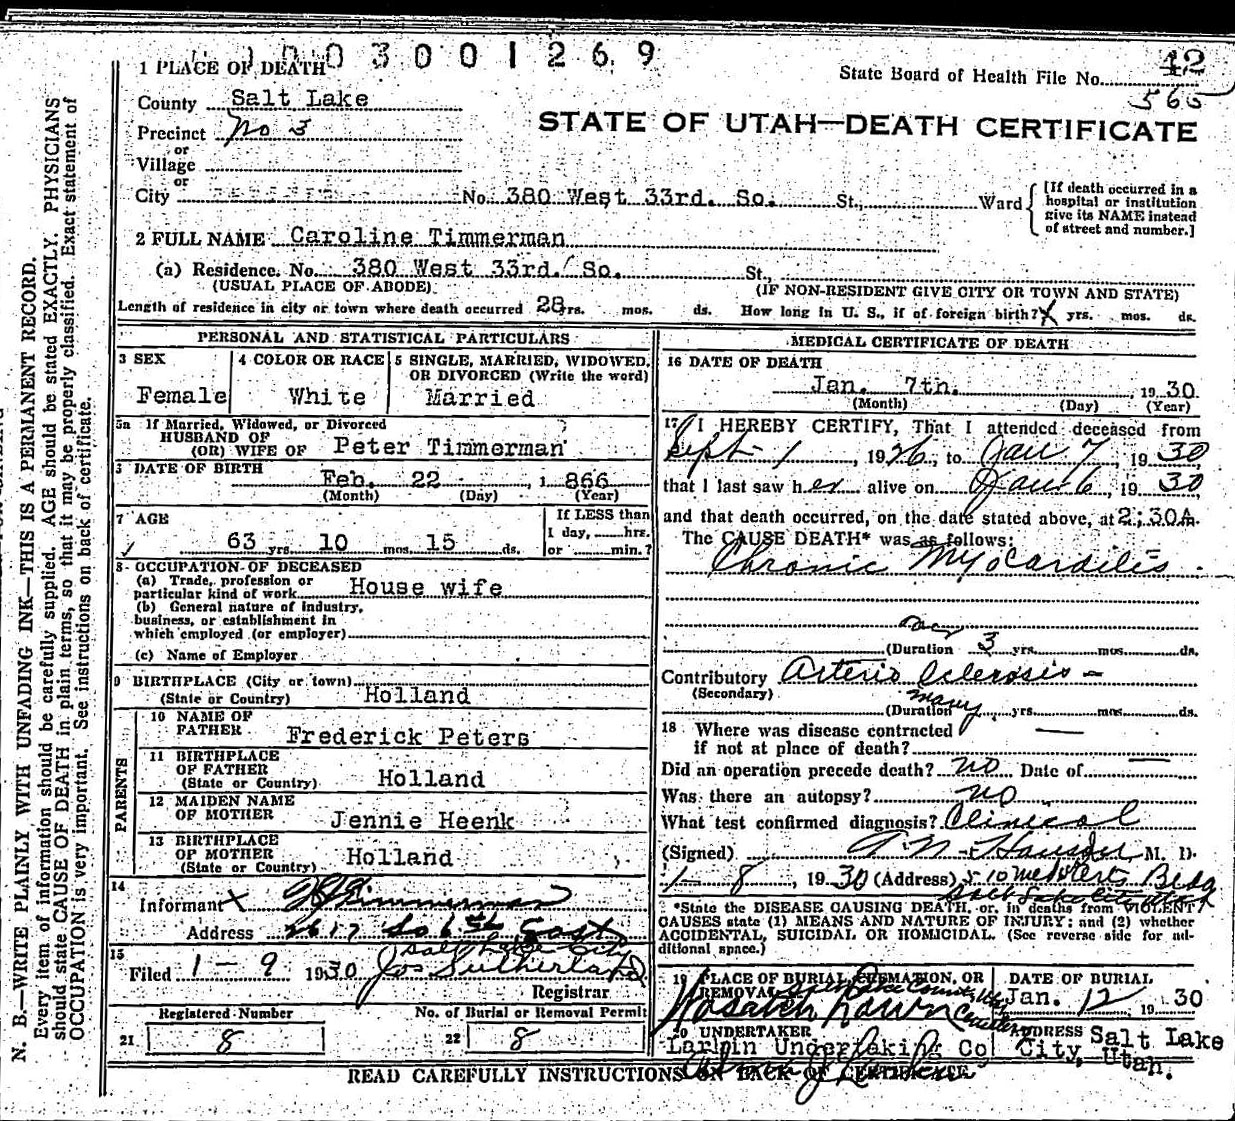 1003001269
State Board of Health File No. 42
565
1 PLACE OF DEATH
County Salt Lake
Precinct No 3
or
Village
or
City No. 380 West 33rd. So. St., Ward
[If death occurred in a hospital or institution give its NAME instead of street and number.]
STATE OF UTAH—DEATH CERTIFICATE
2 FULL NAME Caroline Timmerman
(a) Residence. No. 380 West 33rd. So. St.,
(USUAL PLACE OF ABODE) (IF NON-RESIDENT GIVE CITY OR TOWN AND STATE)
Length of residence in city or town where death occurred 28 yrs. mos. ds. How long in U. S., if of foreign birth? X yrs. mos. ds.
PERSONAL AND STATISTICAL PARTICULARS
3 SEX
Female
4 COLOR OR RACE
White
5 SINGLE, MARRIED, WIDOWED, OR DIVORCED (Write the word)
Married
5a If Married, Widowed, or Divorced
HUSBAND OF
(OR) WIFE OF Peter Timmerman
DATE OF BIRTH
Feb. 22, 1866
(Month) (Day) (Year)
7 AGE
63 yrs. 10 mos. 15 ds.
If LESS than
1 day, hrs.
or min.?
8 OCCUPATION OF DECEASED
(a) Trade, profession or
particular kind of work House wife
(b) General nature of industry,
business, or establishment in
which employed (or employer)
(c) Name of Employer
9 BIRTHPLACE (City or town)
(State or Country) Holland
PARENTS
10 NAME OF
FATHER Frederick Peters
11 BIRTHPLACE
OF FATHER
(State or Country) Holland
12 MAIDEN NAME
OF MOTHER Jennie Heenk
13 BIRTHPLACE
OF MOTHER
(State or Country) Holland
14
Informant X Timmerman
Address 2617 So 6th East
Salt Lake City
15
Filed 1-9 1930 Jos Sutherland
Registrar
Registered Number
21 8
No. of Burial or Removal Permit
22 8
MEDICAL CERTIFICATE OF DEATH
16 DATE OF DEATH
Jan. 7th. 1930.
(Month) (Day) (Year)
17 I HEREBY CERTIFY, That I attended deceased from
Sept 1, 1926, to Jan 7 1930
that I last saw her alive on Jan 6, 1930
and that death occurred, on the date stated above, at 2:30A.m.
The CAUSE DEATH* was as follows:
Chronic Myocardites
(Duration 3 yrs. mos. ds.
Contributory Arterio Sclerosis
(Secondary)
(Duration many yrs. mos. ds.
18 Where was disease contracted
if not at place of death?
Did an operation precede death? no Date of
Was there an autopsy? no
What test confirmed diagnosis? Clinical
(Signed) M. D.
1-8, 1930 (Address) Bldg
*State the DISEASE CAUSING DEATH, or, in deaths from VIOLENT CAUSES state (1) MEANS AND NATURE OF INJURY; and (2) whether ACCIDENTAL, SUICIDAL OR HOMICIDAL. (See reverse side for additional space.)
19 PLACE OF BURIAL, CREMATION, OR
REMOVAL
Wasatch Lawn
DATE OF BURIAL
Jan. 12 1930
20 UNDERTAKER
Larkin Undertaking Co
ADDRESS Salt Lake
City, Utah.
READ CAREFULLY INSTRUCTIONS ON BACK OF CERTIFICATE
N. B.—WRITE PLAINLY WITH UNFADING INK—THIS IS A PERMANENT RECORD.
Every item of information should be carefully supplied. AGE should be stated EXACTLY. PHYSICIANS
should state CAUSE OF DEATH in plain terms, so that it may be properly classified. Exact statement of
OCCUPATION is very important. See instructions on back of certificate.